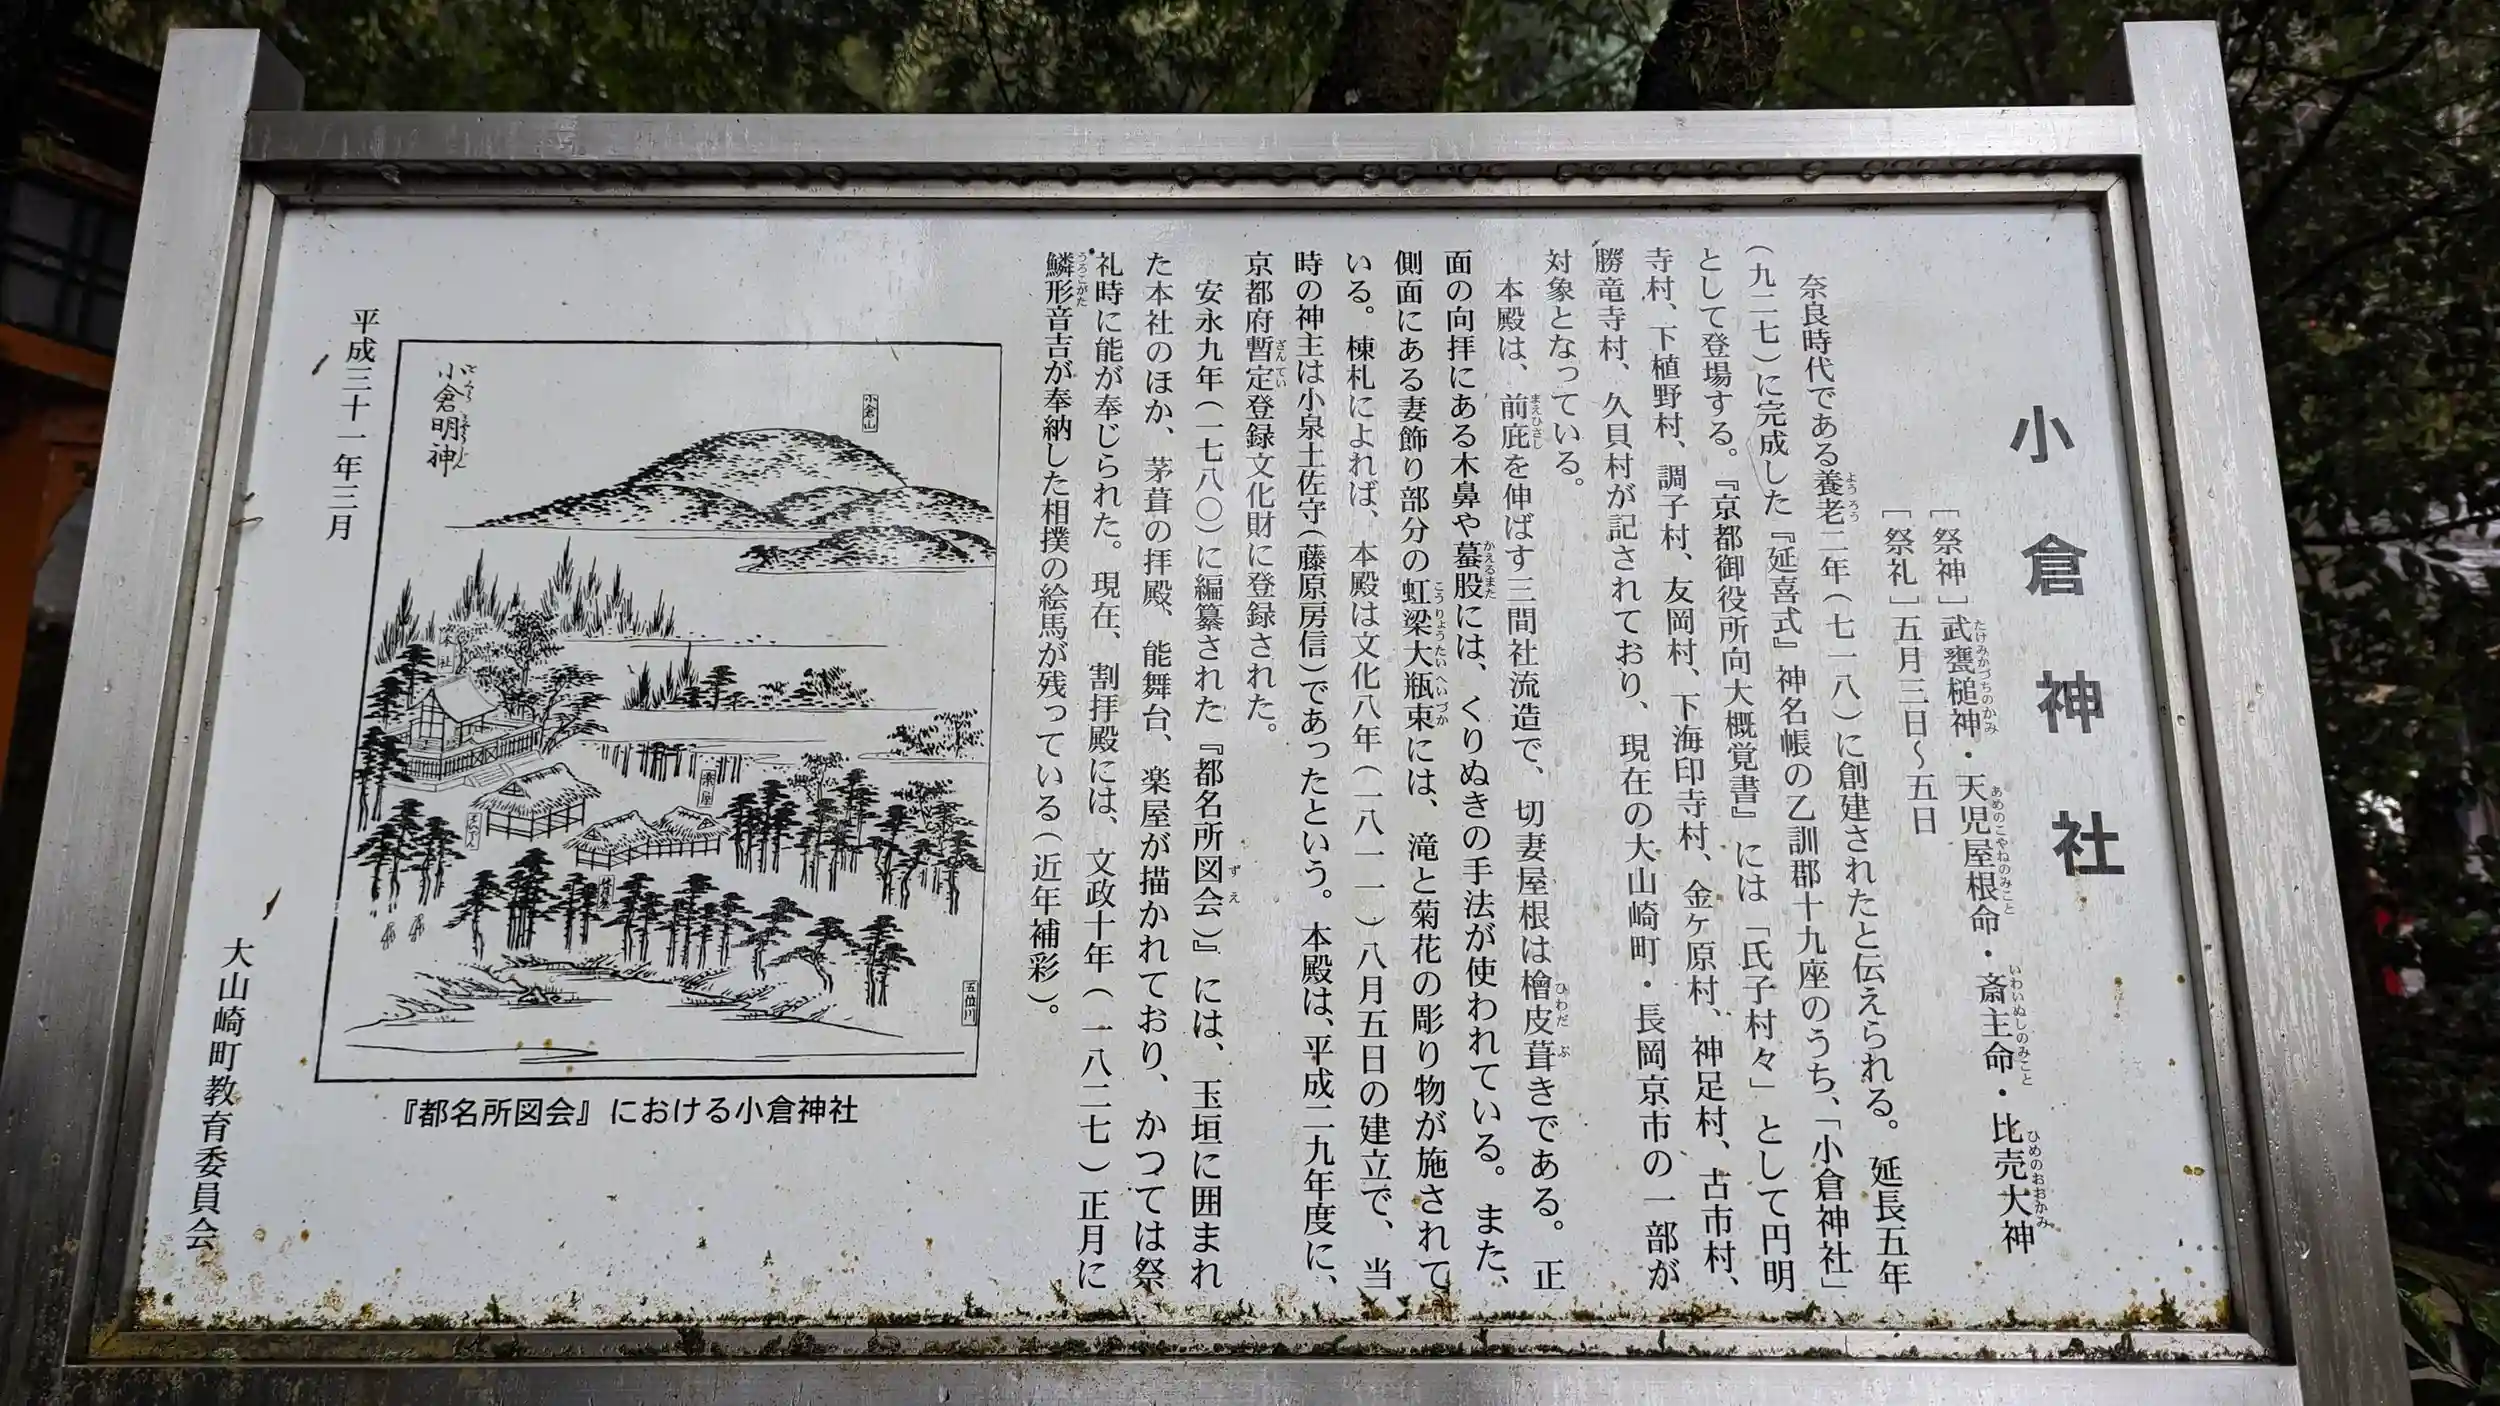 小倉神社
［祭神］武甕槌神・天児屋根命・斎主命・比売大神
［祭礼］五月三日～五日
奈良時代である養老二年（七一八）に創建されたと伝えられる。延長五年
（九二七）に完成した『延喜式』神名帳の乙訓郡十九座のうち、「小倉神社」
として登場する。『京都御役所向大概覚書』には「氏子村々」として円明
寺村、下植野村、調子村、友岡村、下海印寺村、金ヶ原村、神足村、古市村、
勝竜寺村、久貝村が記されており、現在の大山崎町・長岡京市の一部が
対象となっている。
本殿は、前庇を伸ばす三間社流造で、切妻屋根は檜皮葺きである。正
面の向拝にある木鼻や蟇股には、くりぬきの手法が使われている。また、
側面にある妻飾り部分の虹梁大瓶束には、滝と菊花の彫り物が施されて
いる。棟札によれば、本殿は文化八年（一八一一）八月五日の建立で、当
時の神主は小泉土佐守（藤原房信）であったという。本殿は、平成二九年度に、
京都府暫定登録文化財に登録された。
安永九年（一七八〇）に編纂された『都名所図会）』には、玉垣に囲まれ
た本社のほか、茅葺の拝殿、能舞台、楽屋が描かれており、かつては祭
礼時に能が奉じられた。現在、割拝殿には、文政十年（一八二七）正月に
鱗形音吉が奉納した相撲の絵馬が残っている（近年補彩）。
小倉明神
小倉山
本社
楽屋
五位川
『都名所図会』における小倉神社
平成三十一年三月
大山崎町教育委員会